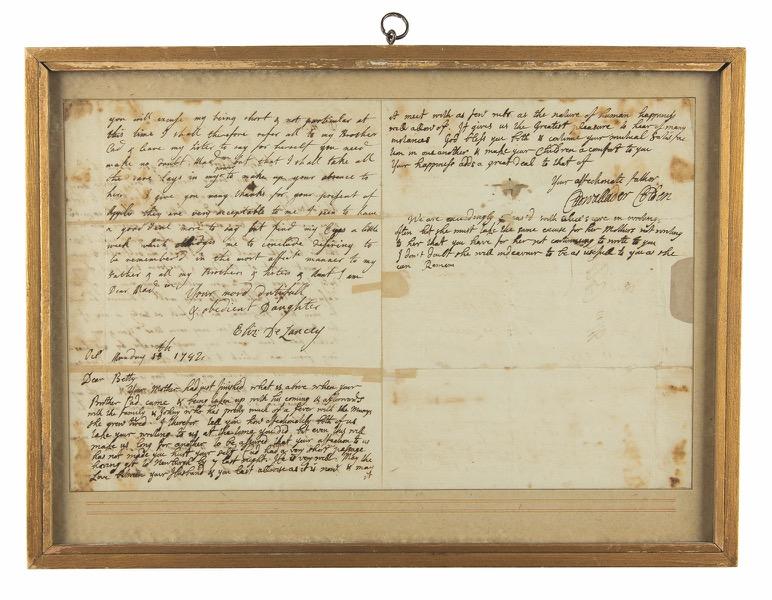 you will excuse my being short & not particular at
this time I shall therefore refer all to my Brother
Cad & leave my sister to say for herself you need
make no doubt Mad but that I shall take all
the care lays in my to make up your absence to
her. I give you many thanks for your present of
Apples they are very acceptable to me I seem to have
a good deal more to say but find my Eyes a little
weak which me to conclude desiring to
be remember'd in the most affect manner to my
Father & all my Brothers & sisters & Aunt I am
Dear Mad
Your most dutifull
& obedient Daughter
Eliz: De Lancey
Monday 1742
Dear Betty
Your Mother had just finished what is above when your
Brother Cad came & being taken up with his coming & afterwards
with the family & who has pretty much of a fever with the Mumps
she grew tired I therefor tell you how affectionately both of us
take your writing to us at the long you did but even this will
make us long for another to be assured that your affection to us
has not made you hurt your self Cad had a very short passage
having got to by 7 last night. He is very well May the
Love between your Husband & you last allwise as it is now & may
it
it meet with as few rubs as the nature of human happiness
will allow of. It gives us the Greatest pleasure to hear of many
instances God bless you both & continue your mutual
in one another & make your Children a comfort to you
Your happiness adds a great deal to that of
Your affectionate father
Cadwallader Colden
We are exceedingly pleas'd with care in writing
often but she must take the same excuse for her Mothers not writing
to her that you have for her not continuing to write to you
I don't doubt she will indeavour to be as usefull to you as she
can